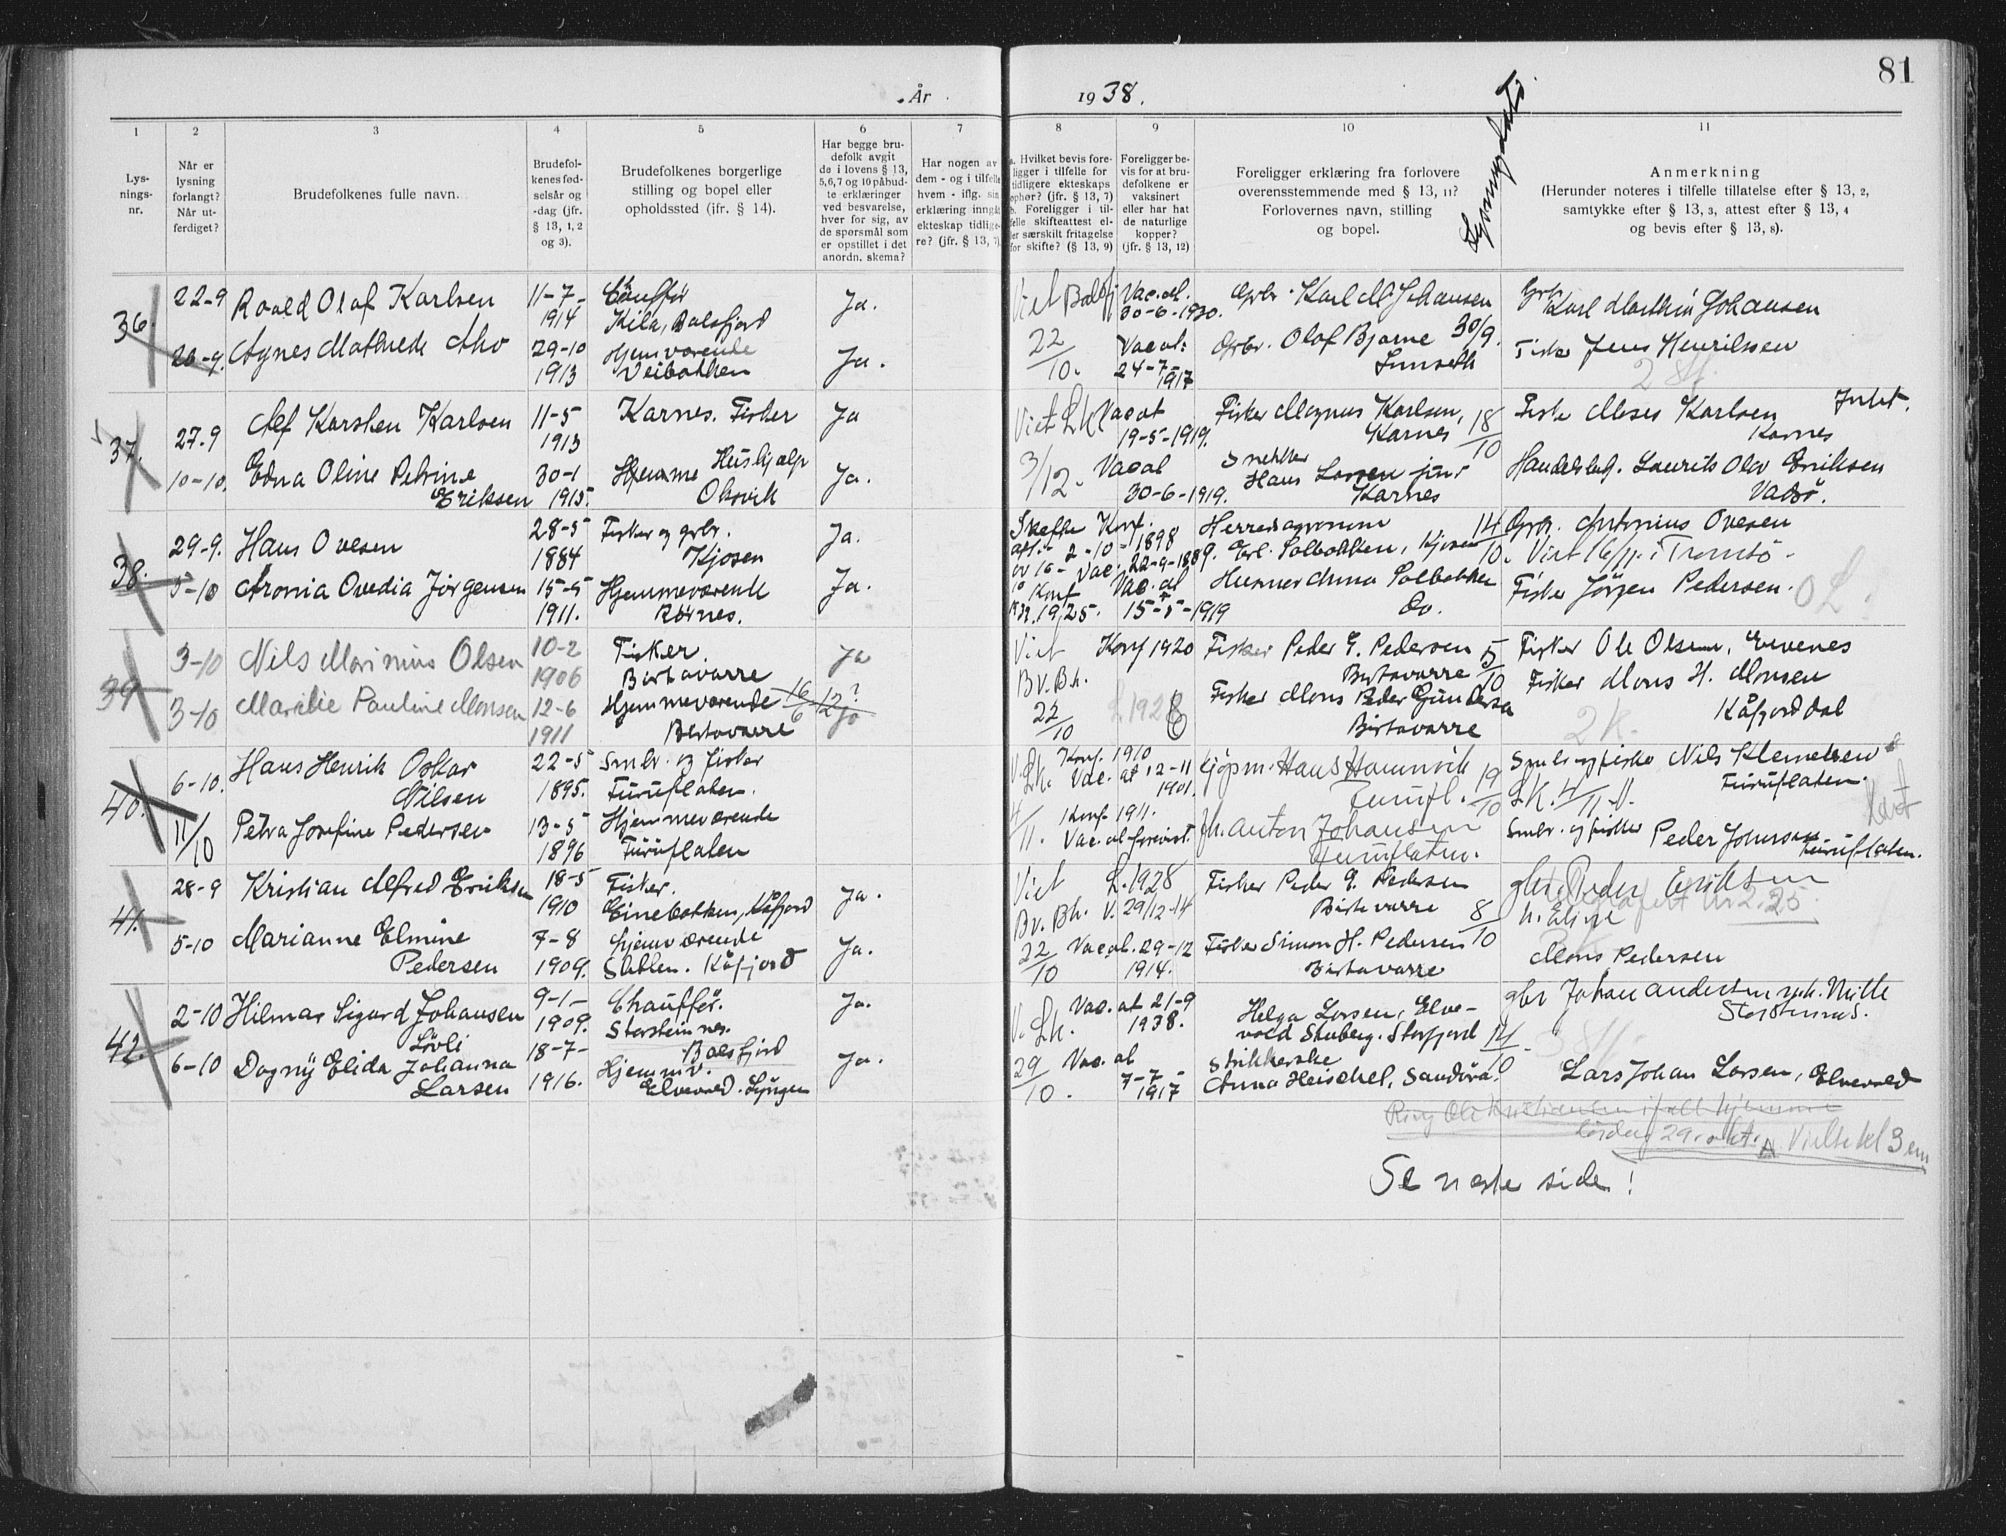 81
År 1938.
1 2 3 4 5 6 7 8 9 10 11
Lys-
nings-
nr.
Når er
lysning
forlangt?
Når ut-
ferdiget?
Brudefolkenes fulle navn.
Brudefol-
kenes fød-
selsår og
-dag (jfr.
§ 13, 1, 2
og 3).
Brudefolkenes borgerlige
stilling og bopel eller
opholdssted (jfr. § 14).
Har begge bru-
defolk avgit
de i lovens § 13,
5,6,7 og 10 påbud-
te erklæringer
ved besvarelse,
hver for sig, av
de spørsmål som
er opstillet i det
anordn. skema?
Har nogen av
dem - og i tilfelle
hvem - iflg. sin
erklæring inngåt
ekteskap tidlige-
re? (jfr. § 13, 7).
a. Hvilket bevis fore-
ligger i tilfelle for
tidligere ekteskaps
ophør? (jfr. § 13, 7)
b. Foreligger i til-
felle skifteattest el-
ler særskilt fritagelse
for skifte? (§ 13, 9)
Foreligger be-
vis for at bru-
defolkene er
vaksinert
eller har hat
de naturlige
kopper?
(jfr. § 13, 12)
Foreligger erklæring fra forlovere
overensstemmende med § 13, 11?
Forlovernes navn, stilling
og bopel.
Anmerkning
(Herunder noteres i tilfelle tillatelse efter § 13, 2,
samtykke efter § 13, 3, attest efter § 13, 4
og bevis efter § 13, 8).
36. 22-9 Roald Olaf Karlsen 11-7- Ja. Viet Vac. at. Grbr. Karl M. Johansen Karl Marthin Johansen
1914 Kila, Balsfjord 30-6-1920.
Agnes Mathilde 29-10 Hjemværende Ja. 22 Vac at: Grbr. Olaf Bjarne 30/9. Fisker Jens Henriksen
1913 Veibakken 10. 24-7-1917
37. 27.9 Alf Karsten Karlsen 11-5 Karnes. Fisker Ja Viet L.k. Vac at Fisker Magnus Karlsen, 18 Fisker Moses Karlsen
1913 19-5-1919. Karnes 10 Karnes
10-10. Edna Oline Petrine 30-1 Hjemme Hushjelp Ja. 3/12. Vac at Snekker Hans Larsen jun. Laurits Olav Eriksen
Eriksen 1915. Oksvik 30-6-1919. Karnes Vadsø.
38. 29-9. Hans Ovesen 28-5 Fisker og grbr. Ja. Konf. Herredsagronom 14 Grbr. Antonius Ovesen
1884 Kjosen 2-10-1898 Erl. Solbakken, Kjosen 10. Viet 16/11. i Tromsø.
5-10 Aronia Ovedia Jørgensen 15-5 Hjemmeværende Ja. Konf Vac. at Solbakken Fisker Jørgen Pedersen.
1911. Rørnes. 1925. 15-5-1919 Do.
39 3-10 Nils Marinius Olsen 10-2 Fisker. Ja Viet Konf 1920 Fisker Peder E. Pedersen 5 Fisker Ole Olsen,
1906 Birtavarre Bv.Bh. Birtavarre 10 Fisker Mons H. Monsen
3-10 Pauline Monsen 12-6 Hjemmeværende 22 Fisker Mons Peder Kåfjorddal
1911 Birtavarre 10 Birtavarre 2K.
40. 6-10. Hans Henrik Oskar 22-5 Smbr. og fisker L.k. Konf. 1910 Kjøpm. Hans Hamnvik Smbr og fisker Nils Klemetsen
Nilsen 1895. Furuflaten. Vac. at 12-11 1901. Furufl. 19/10 L.K. 4/11. Furuflaten.
11/10 Petra Josefine Pedersen 13-5 Hjemmeværende 4/11. Konf- 1911. Anton Johansen Smbr. og fisker Peder Johnsen
1896 Furuflaten Vac. at forevist. Furuflaten. Furuflaten.
41. 28-9 Kristian Alfred Eriksen 18-5 Fisker. Ja. Viet L. 1928 Fisker Peder E. Pedersen gbr. Peder Eriksen
1910 Einebakken, Kåfjord Bv. Bh. V. 29/12-14 Birtavarre 8/10
5-10 Marianne Elmine 7-8 Hjemværende Ja. 22 Vac at. 29-12 Fisker Simon H. Pedersen
Pedersen 1909. Kåfjord 10 1914. Birtavarre Mons Pedersen
42. 2-10 Hilmar Sigurd Johansen 9-1- Chauffør. Ja. V. L.k. Vac. at 21-9 Helga Larsen, Elve- gbr Johan Andersen
Løvli 1909. Storsteinnes. 1938. vold Storfjord 14
6-10 Dagny Elida Johanna 18-7- Balsfjord Ja. 29 Vac. at Strikkerske 10
Larsen 1916. Hjemmv. Elvevold. Lyngen 10. 7-7-1917 Anna Heischel, Lars Johan Larsen, Elvevold
lørdag 29. okt. Vielse kl 3 em
Se neste side!